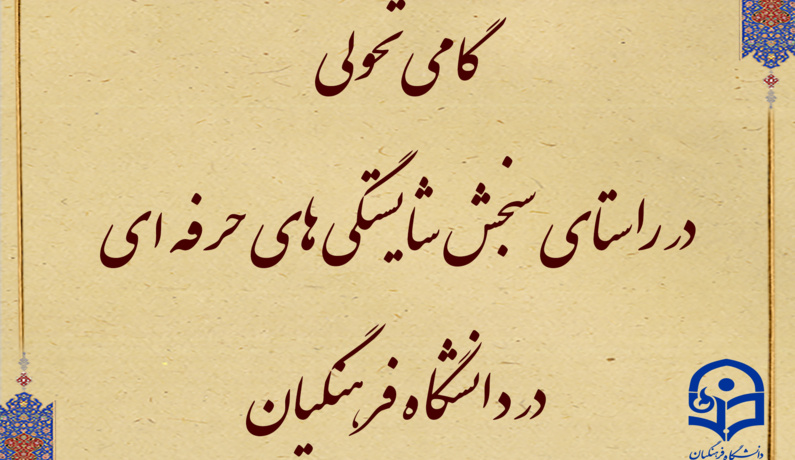 گامی تحولی
در راستای سنجش شایستگی های حرفه ای
در دانشگاه فرهنگیان
دانشگاه فرهنگیان